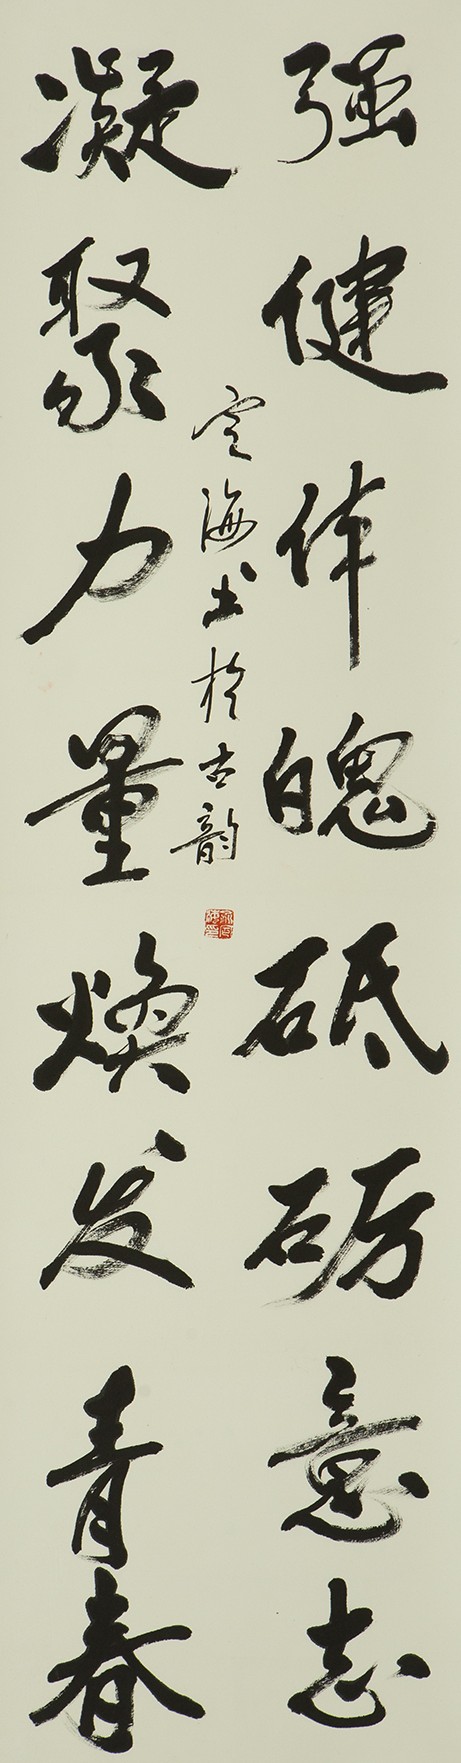 强健体魄砥砺意志
凝聚力量焕发青春
空海书于古韵